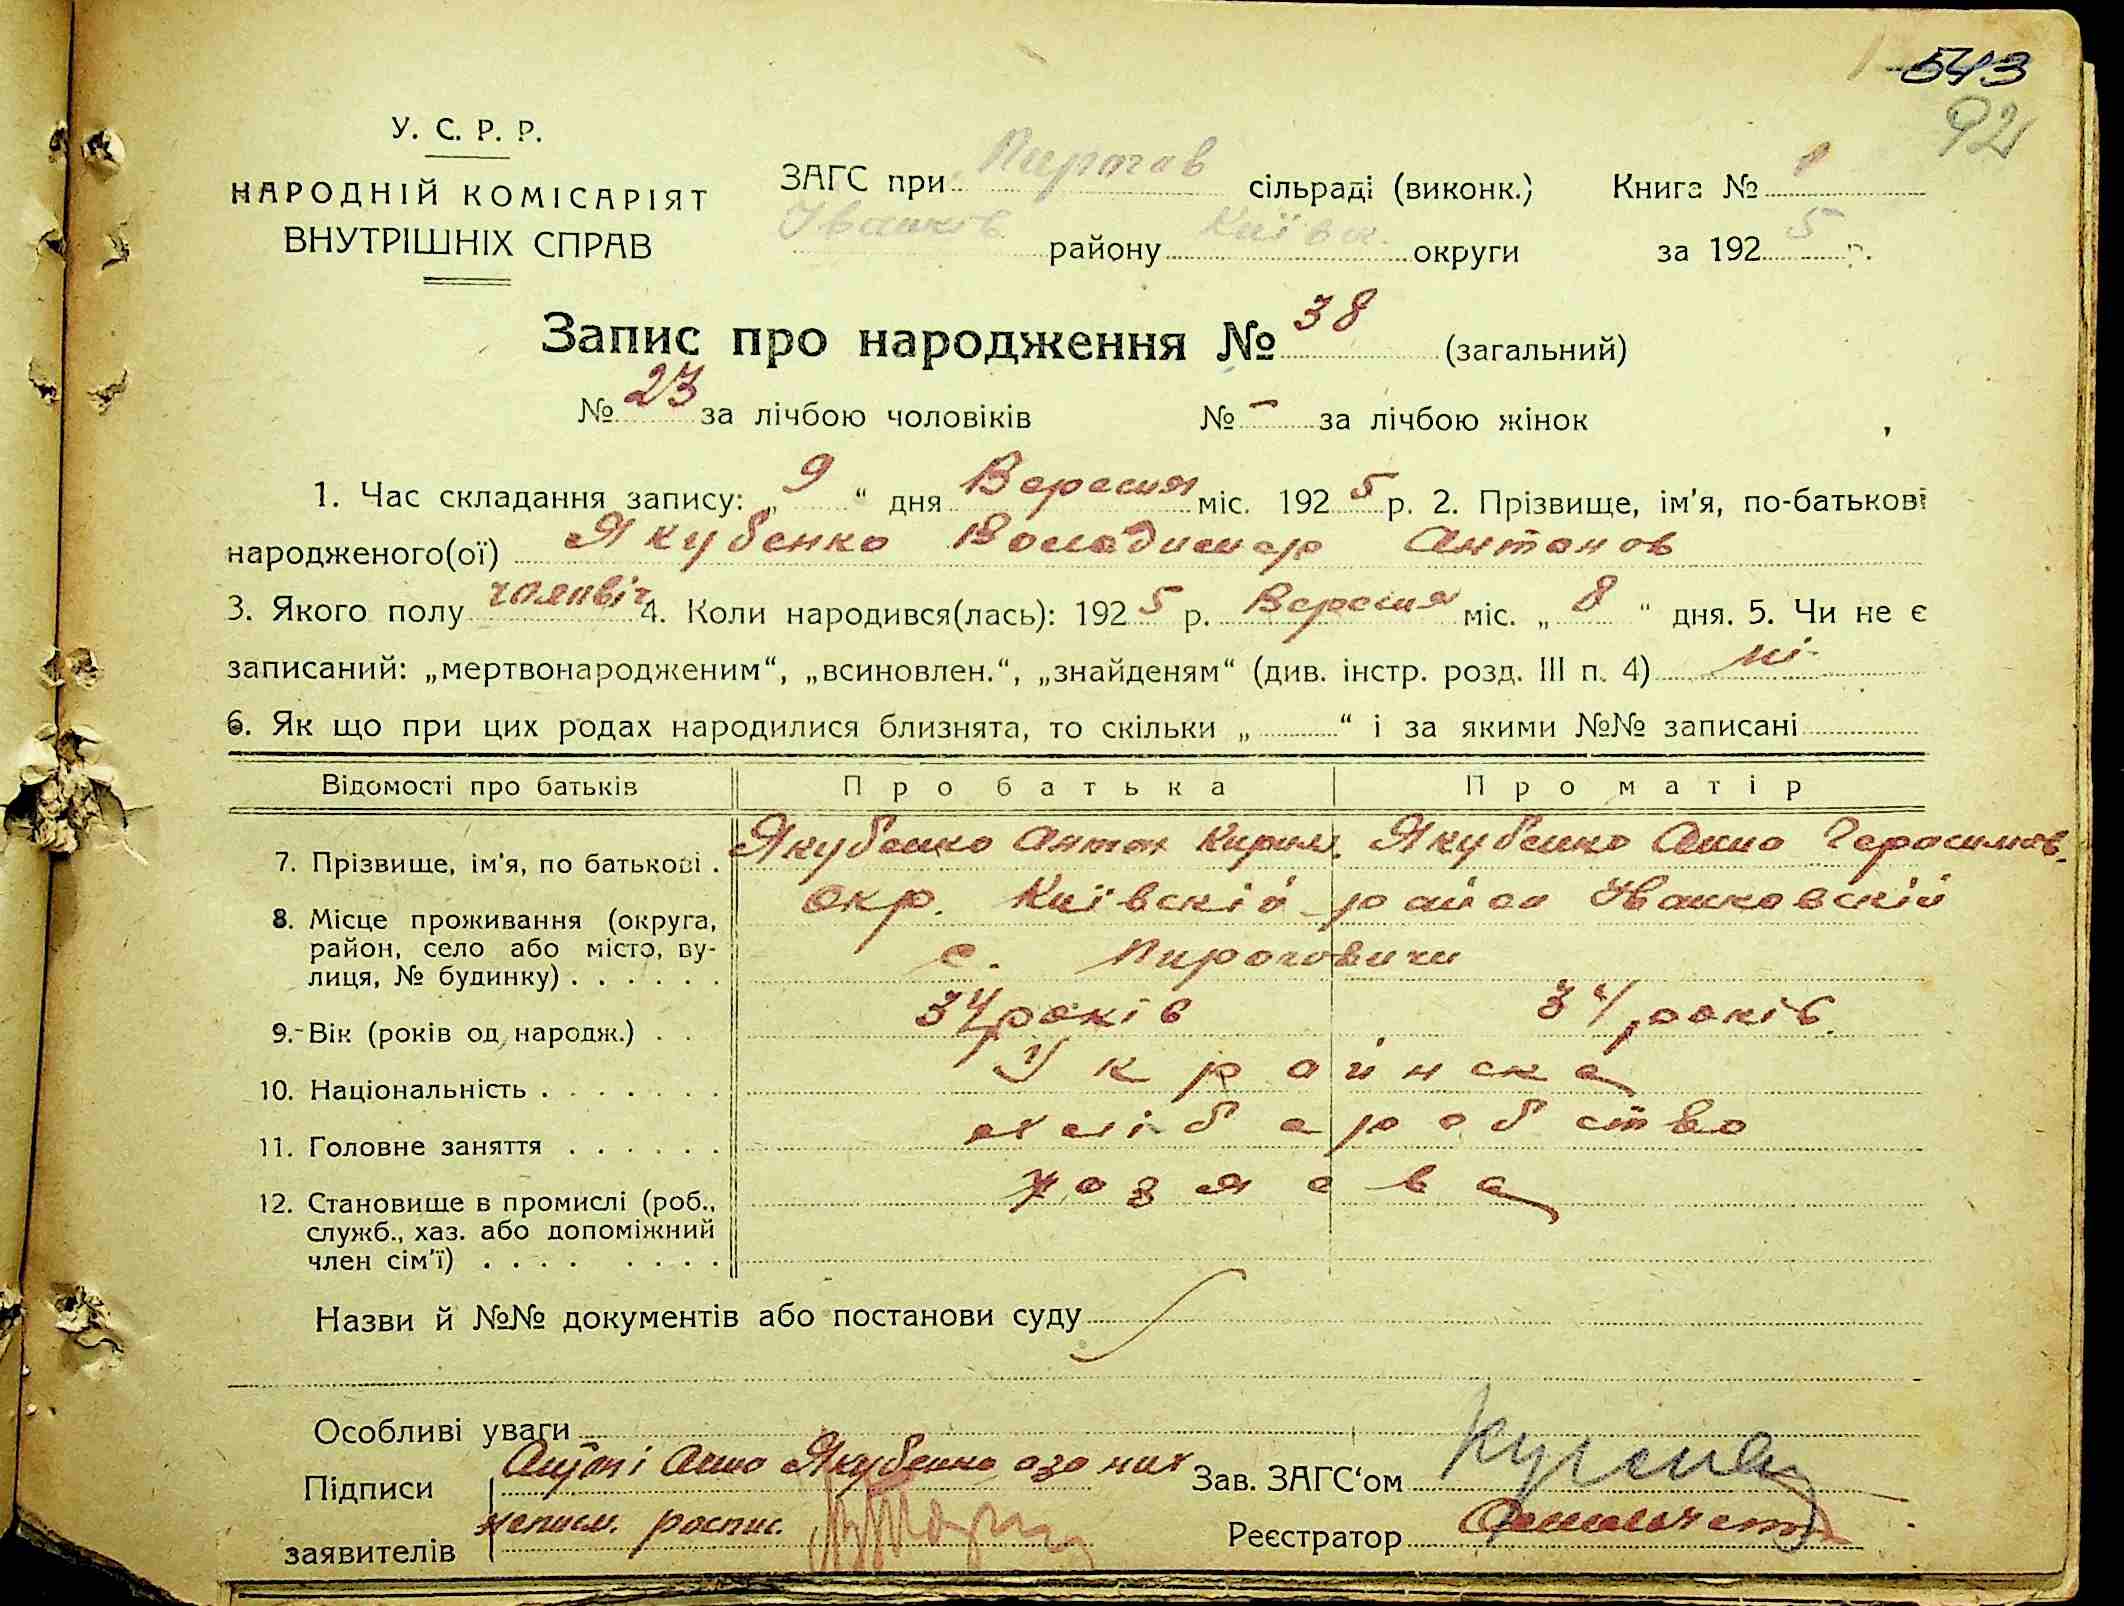 543
92
У. С. Р. Р.
НАРОДНІЙ КОМІСАРІЯТ
ВНУТРІШНІХ СПРАВ
ЗАГС при Пирогов сільраді (виконк.) Книга № 1
Іванків району Київськ. округи за 192 5 р.
Запис про народження № 38 (загальний)
№ 23 за лічбою чоловіків № – за лічбою жінок
1. Час складання запису: „ 9 “ дня Вересня міс. 192 5 р. 2. Прізвище, ім'я, по-батькові
народженого(ої) Якубенко Володимир Антонов
3. Якого полу чоловіч 4. Коли народився(лась): 192 5 р. Вересня міс. „ 8 “ дня. 5. Чи не є
записаний: „мертвонародженим“, „всиновлен.“, „знайденям“ (див. інстр. розд. III п. 4) ні
6. Як що при цих родах народилися близнята, то скільки „ “ і за якими №№ записані
Відомості про батьків Про батька Про матір
7. Прізвище, ім'я, по батькові . Якубенко Антон Кирил. Якубенко Анна Герасимов.
8. Місце проживання (округа, окр. Київскій район Іванковскій
район, село або місто, ву- с. Пироговичи
лиця, № будинку) . . . . . .
9. Вік (років од народж.) . . 34 років 34 років
10. Національність . . . . . . . Українска
11. Головне заняття . . . . . . хліборобство
12. Становище в промислі (роб., хозяева
служб., хаз. або допоміжний
член сім'ї) . . . . . . . .
Назви й №№ документів або постанови суду
Особливі уваги
Підписи Антон і Анна Якубенко а за них Зав. ЗАГС'ом
заявителів неписм. роспис. Реєстратор